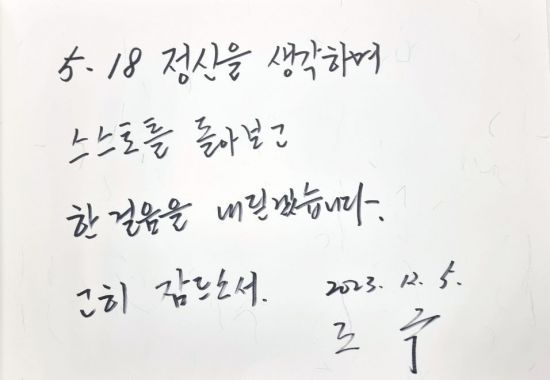 5. 18 정신을 생각하며
스스로를 돌아보고
한 걸음을 내딛겠습니다.
고히 잠드소서.
2023. 12. 5.
도 후